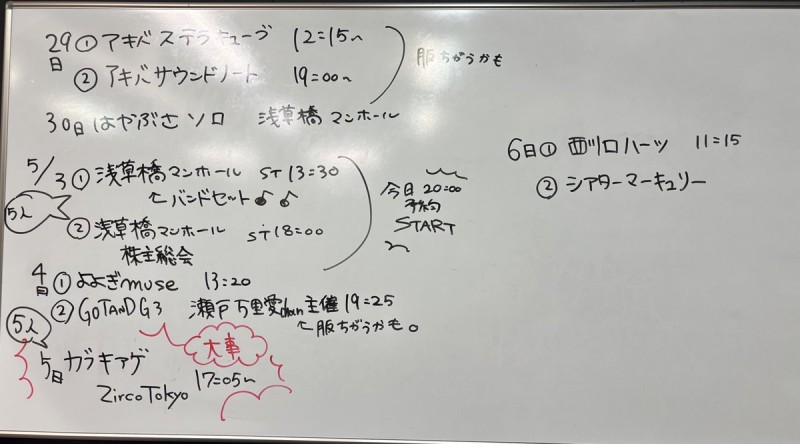 29日 ① アキバ ステラ キューブ 12:15〜
② アキバ サウンドノート 19:00〜
服ちがうかも
30日 はやぶさ ソロ 浅草橋 マンホール
5/3 ① 浅草橋 マンホール ST 13:30
← バンドセット ♪ ♪
5人
② 浅草橋 マンホール st 18:00
株主総会
今日 20:00
予約
START
4日 ① よよぎmuse 13:20
② GOTANDG3 瀬戸万里愛chan 主催 19:25
← 服ちがうかも。
5人
大事
5日 カラキアゲ 17:05〜
Zirco Tokyo
6日 ① 西川口ハーツ 11:15
② シアターマーキュリー